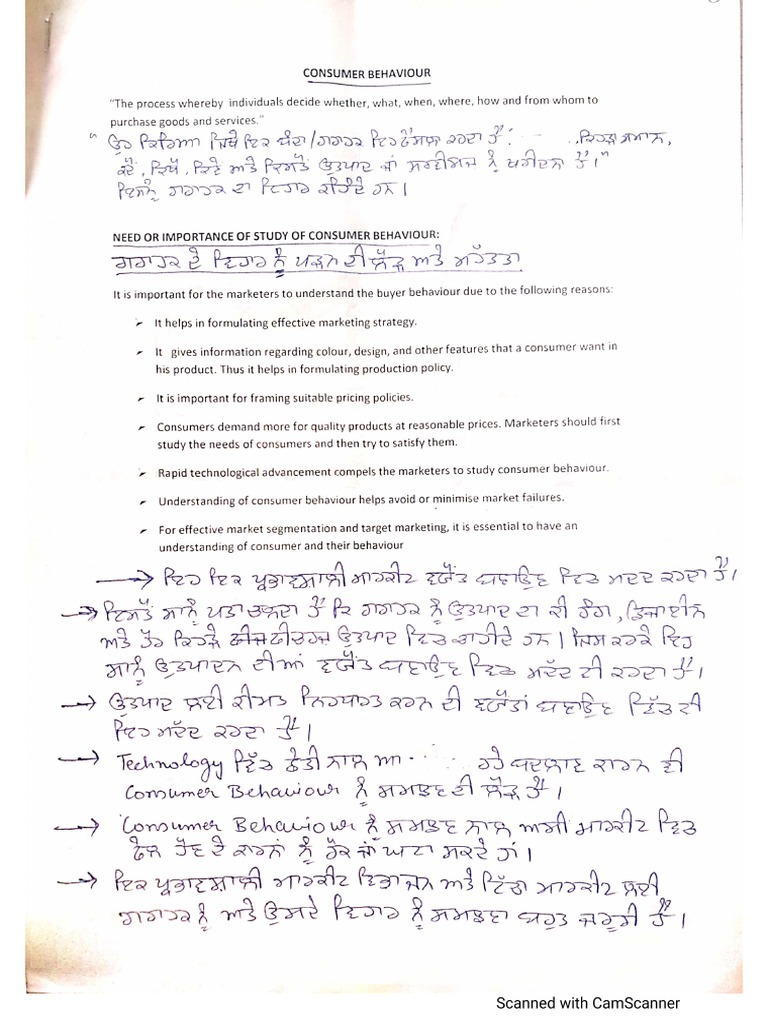 CONSUMER BEHAVIOUR
"The process whereby individuals decide whether, what, when, where, how and from whom to
purchase goods and services."
" ਉਹ ਕਿਰਿਆ ਜਿਥੇ ਇਕ ਬੰਦਾ/ਗਗਾਹਕ ਇਹ ਫੈਂਸਲਾ ਕਰਦਾ ਹੈ ਕਿਹੜਾ ਸਮਾਨ,
ਕਦੋਂ, ਕਿਥੋਂ, ਕਿਵੇਂ ਅਤੇ ਕਿਸਤੋਂ ਉਤਪਾਦ ਜਾਂ ਸਰਵੀਸਿਜ ਨੂੰ ਖਰੀਦਨਾ ਹੈ।"
ਇਸਨੂੰ ਗਗਾਹਕ ਦਾ ਵਿਹਾਰ ਕਹਿੰਦੇ ਹਨ।
NEED OR IMPORTANCE OF STUDY OF CONSUMER BEHAVIOUR:
ਗਗਾਹਕ ਦੇ ਵਿਹਾਰ ਨੂੰ ਪੜਨ ਦੀ ਲੋੜ ਅਤੇ ਮਹੱਤਤਾ
It is important for the marketers to understand the buyer behaviour due to the following reasons:
➤ It helps in formulating effective marketing strategy.
➤ It gives information regarding colour, design, and other features that a consumer want in
his product. Thus it helps in formulating production policy.
➤ It is important for framing suitable pricing policies.
➤ Consumers demand more for quality products at reasonable prices. Marketers should first
study the needs of consumers and then try to satisfy them.
➤ Rapid technological advancement compels the marketers to study consumer behaviour.
➤ Understanding of consumer behaviour helps avoid or minimise market failures.
➤ For effective market segmentation and target marketing, it is essential to have an
understanding of consumer and their behaviour
→ ਇਹ ਇਕ ਪ੍ਰਭਾਵਸ਼ਾਲੀ ਮਾਰਕੀਟ ਵਯੋਂਤ ਬਣਾਉਣ ਵਿਚ ਮਦਦ ਕਰਦਾ ਹੈ।
→ ਇਸਤੋਂ ਸਾਨੂੰ ਪਤਾ ਚਲਦਾ ਹੈ ਕਿ ਗਗਾਹਕ ਨੂੰ ਉਤਪਾਦ ਦਾ ਕੀ ਰੰਗ, ਡਿਜਾਈਨ
ਅਤੇ ਹੋਰ ਕਿਹੜੇ ਫੀਚਰਜ ਉਤਪਾਦ ਵਿਚ ਚਾਹੀਦੇ ਹਨ। ਜਿਸ ਕਰਕੇ ਇਹ
ਸਾਨੂੰ ਉਤਪਾਦਨ ਦੀਆਂ ਵਯੋਂਤ ਬਣਾਉਣ ਵਿਚ ਮਦੱਦ ਵੀ ਕਰਦਾ ਹੈ।
→ ਉਤਪਾਦ ਲਈ ਕੀਮਤ ਨਿਰਧਾਰਤ ਕਰਨ ਦੀ ਵਯੋਂਤਾਂ ਬਣਾਉਣ ਵਿੱਚ ਵੀ
ਇਹ ਮਦੱਦ ਕਰਦਾ ਹੈ।
→ Technology ਵਿੱਚ ਤੇਜੀ ਨਾਲ ਆ ਰਹੇ ਬਦਲਾਵ ਕਾਰਨ ਵੀ
Consumer Behaviour ਨੂੰ ਸਮਝਣ ਦੀ ਲੋੜ ਹੈ।
→ Consumer Behaviour ਨੂੰ ਸਮਝਣ ਨਾਲ ਅਸੀਂ ਮਾਰਕੀਟ ਵਿਚ
ਫੇਲ ਹੋਣ ਦੇ ਕਾਰਨਾਂ ਨੂੰ ਰੋਕ ਜਾਂ ਘਟਾ ਸਕਦੇ ਹਾਂ।
→ ਇਕ ਪ੍ਰਭਾਵਸ਼ਾਲੀ ਮਾਰਕੀਟ ਵਿਭਾਜਨ ਅਤੇ ਮਾਰਕੀਟ ਲਈ
ਗਗਾਹਕ ਨੂੰ ਅਤੇ ਉਸਦੇ ਵਿਹਾਰ ਨੂੰ ਸਮਝਣਾ ਬਹੁਤ ਜਰੂਰੀ ਹੈ।
Scanned with CamScanner